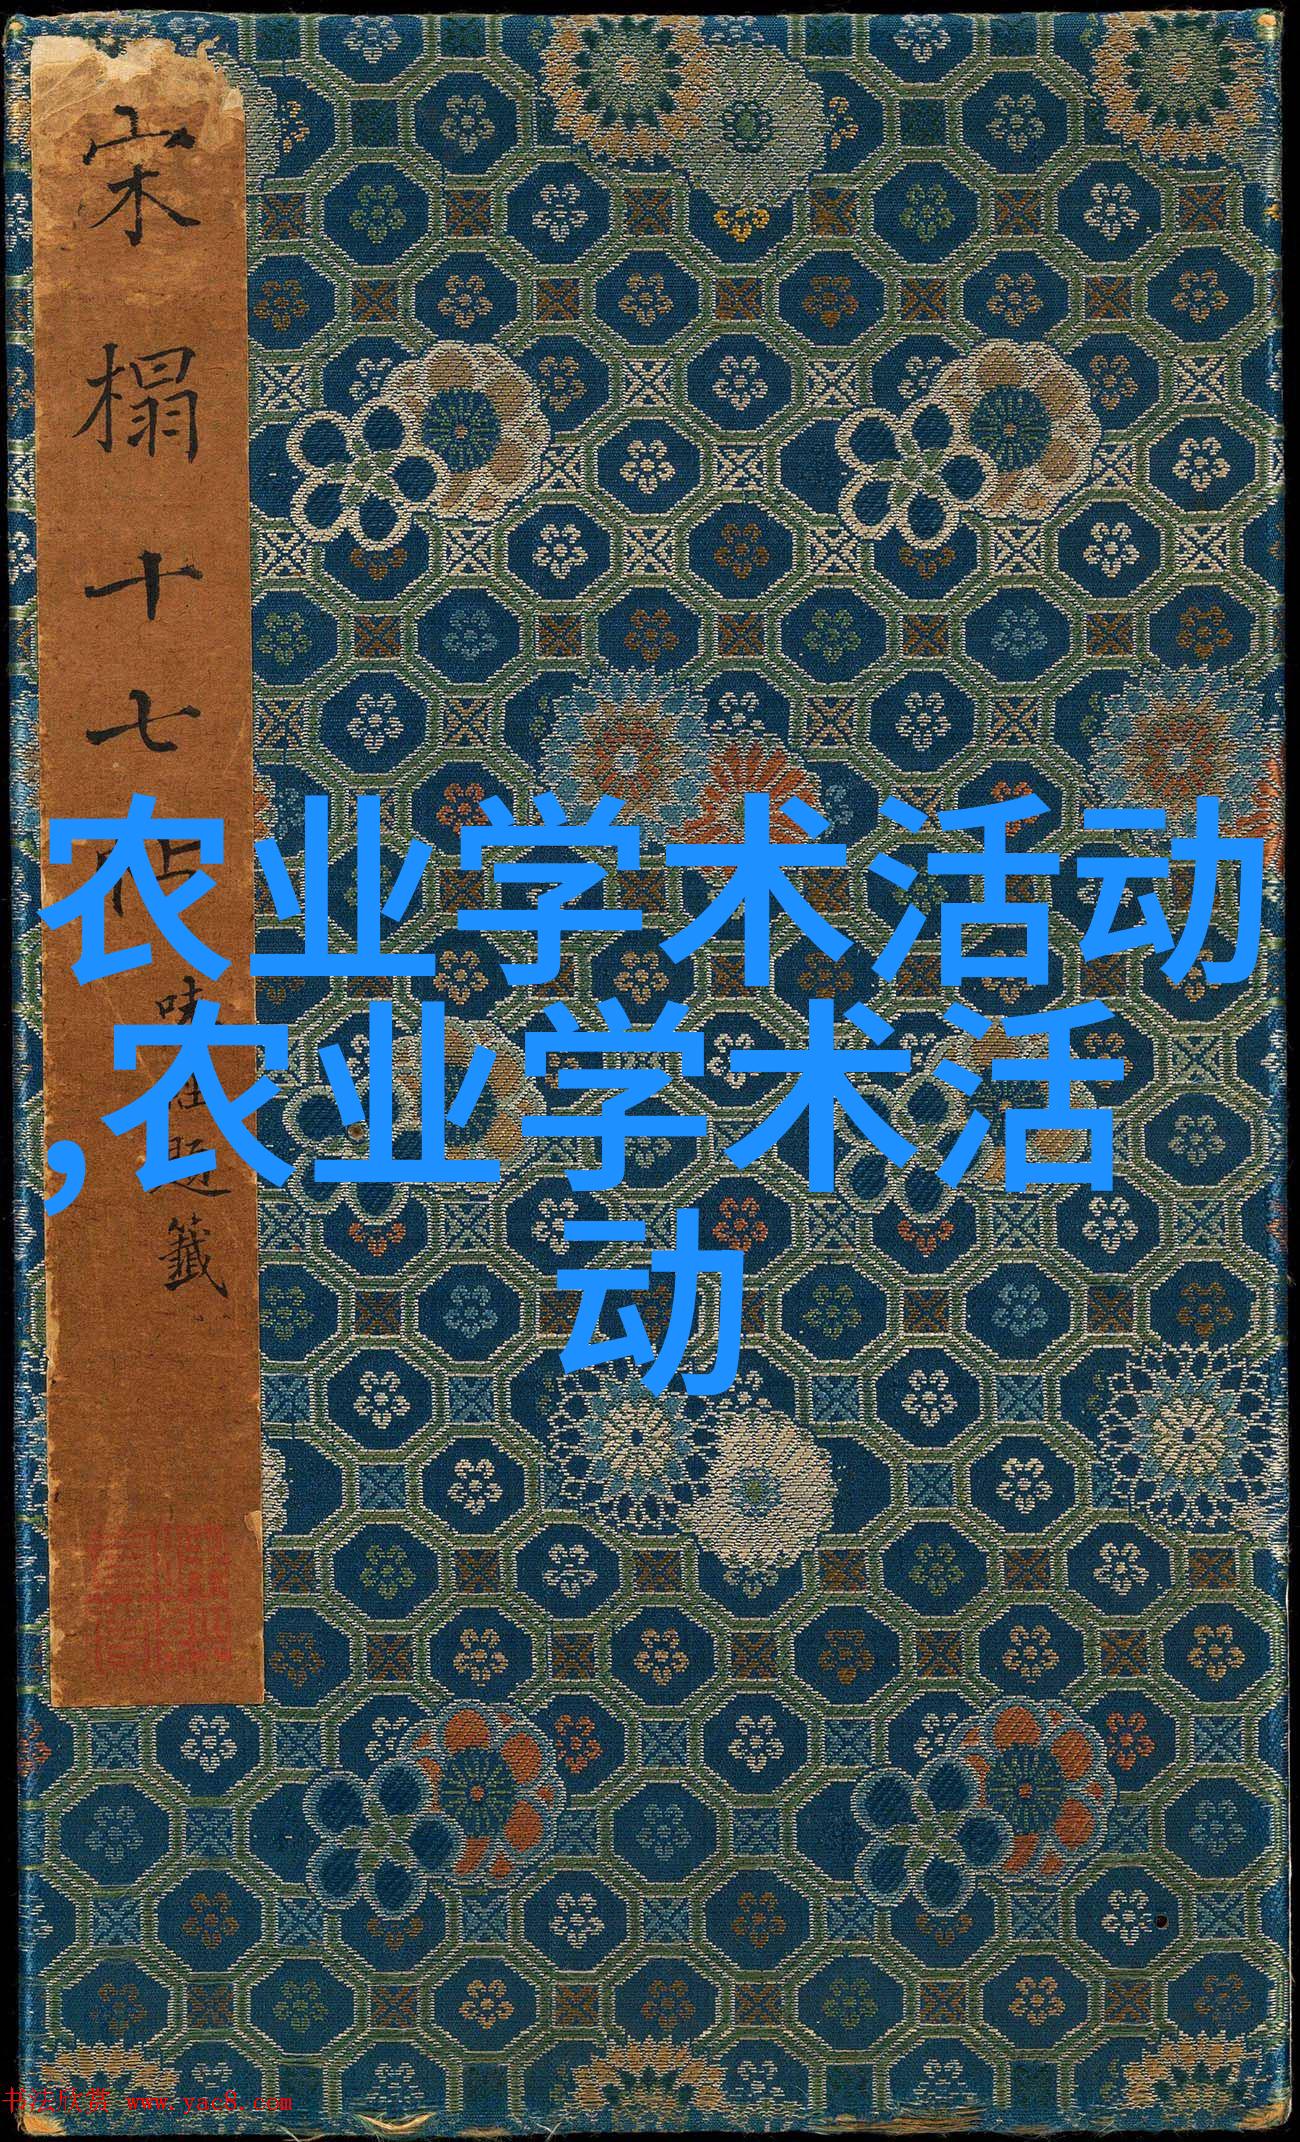 宋榻十七帖
題籤
农业学术活动
,农业学术活
动
书法欣赏 www.yac8.com